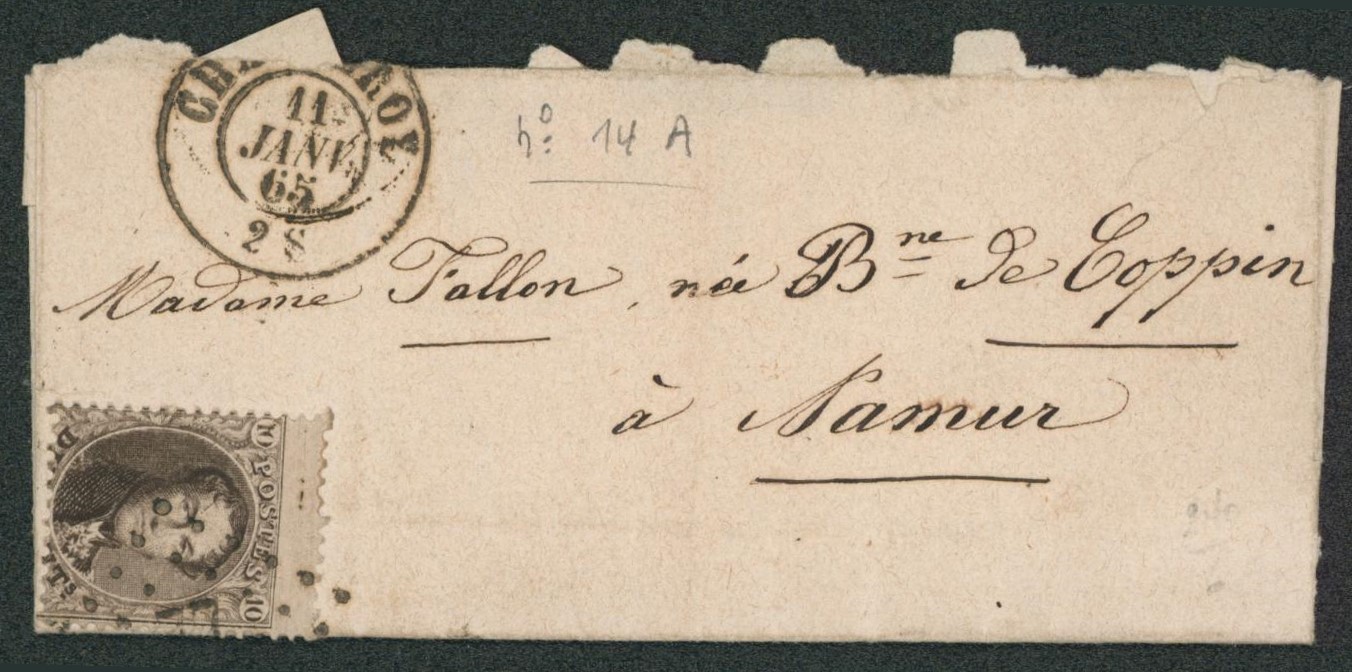 11
JANV.
65
2 S
nº 14 A
Madame Fallon, née Bne de Coppin
à Namur
POSTES
10